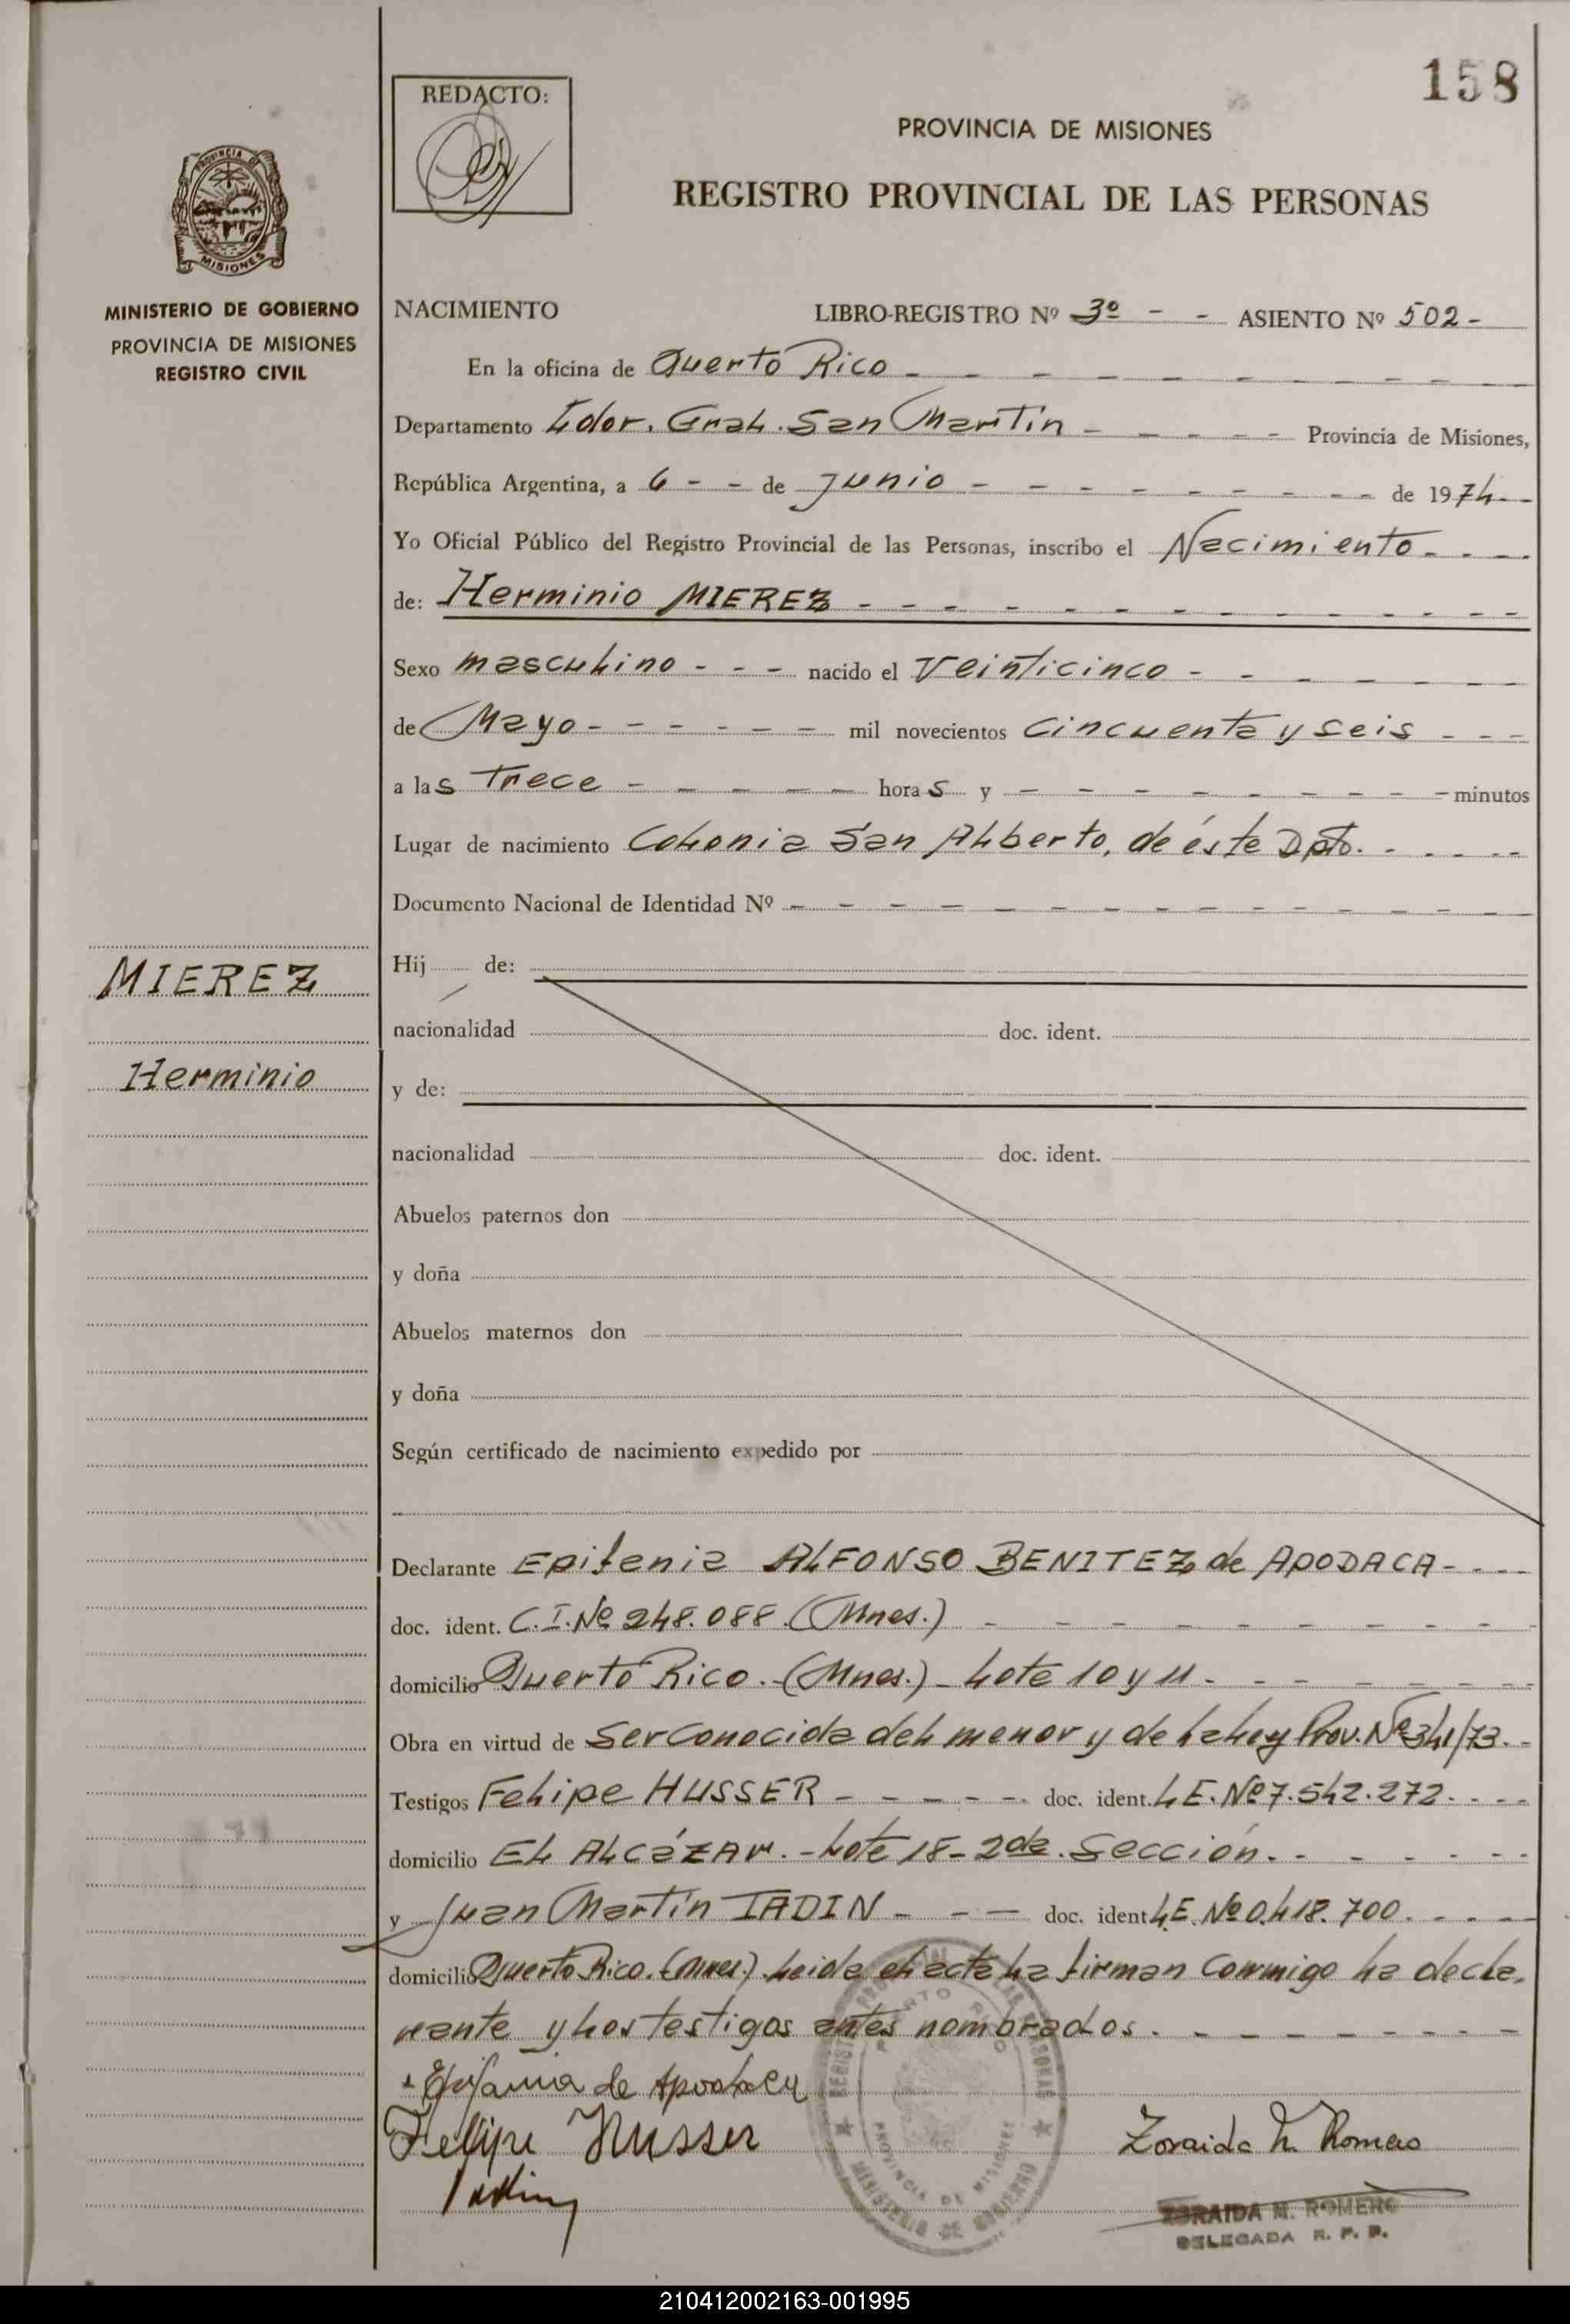 158
REDACTO:
PROVINCIA DE MISIONES
REGISTRO PROVINCIAL DE LAS PERSONAS
PROVINCIA DE
MISIONES
MINISTERIO DE GOBIERNO
PROVINCIA DE MISIONES
REGISTRO CIVIL
NACIMIENTO LIBRO-REGISTRO Nº 3º - - ASIENTO Nº 502-
En la oficina de Puerto Rico
Departamento Ldor. Gral. San Martín - - - - - Provincia de Misiones,
República Argentina, a 6 - - de Junio - - - - - - - - - de 1974--
Yo Oficial Público del Registro Provincial de las Personas, inscribo el Nacimiento- - - -
de: Herminio MIEREZ - - - - - - - - - - -
Sexo masculino - - - nacido el Veinticinco - - - - - -
de Mayo - - - - - - mil novecientos cincuenta y seis - - -
a las Trece - - - - - horas y - - - - - - - - minutos
Lugar de nacimiento Colonia San Alberto, de éste Dpto. - - - -
Documento Nacional de Identidad Nº - - - - - - - - - - - - -
MIEREZ
Herminio
Hij de:
nacionalidad doc. ident.
y de:
nacionalidad doc. ident.
Abuelos paternos don
y doña
Abuelos maternos don
y doña
Según certificado de nacimiento expedido por
Declarante Epifania ALFONSO BENITEZ de APODACA - - - -
doc. ident. C.I.Nº 248.088.(Mnes.) - - - - - - - -
domicilio Puerto Rico.-(Mnes.)- Lote 10 y 11. - - - - - -
Obra en virtud de ser conocida del menor y de la ley Prov. Nº 341/73.-
Testigos Felipe HUSSER - - - - - doc. ident. L.E.Nº7.542.272. - - -
domicilio EL ALCázAr.-Lote 18- 2da. Sección. - - - - - -
y Juan Martín TADIN - - - doc. ident L.E. Nº 0.418.700. - - - -
domicilio Puerto Rico.(Mnes.) Leida el acta la firman conmigo la decla-
rante y los testigos antes nombrados. - - - - - - - -
Epifania de Apodaca
Felipe Husser
Tadin
Zoraida N. Romero
ZORAIDA N. ROMERO
DELEGADA R. P. P.
PUERTO RICO
PROVINCIA DE MISIONES
MINISTERIO DE GOBIERNO
210412002163-001995